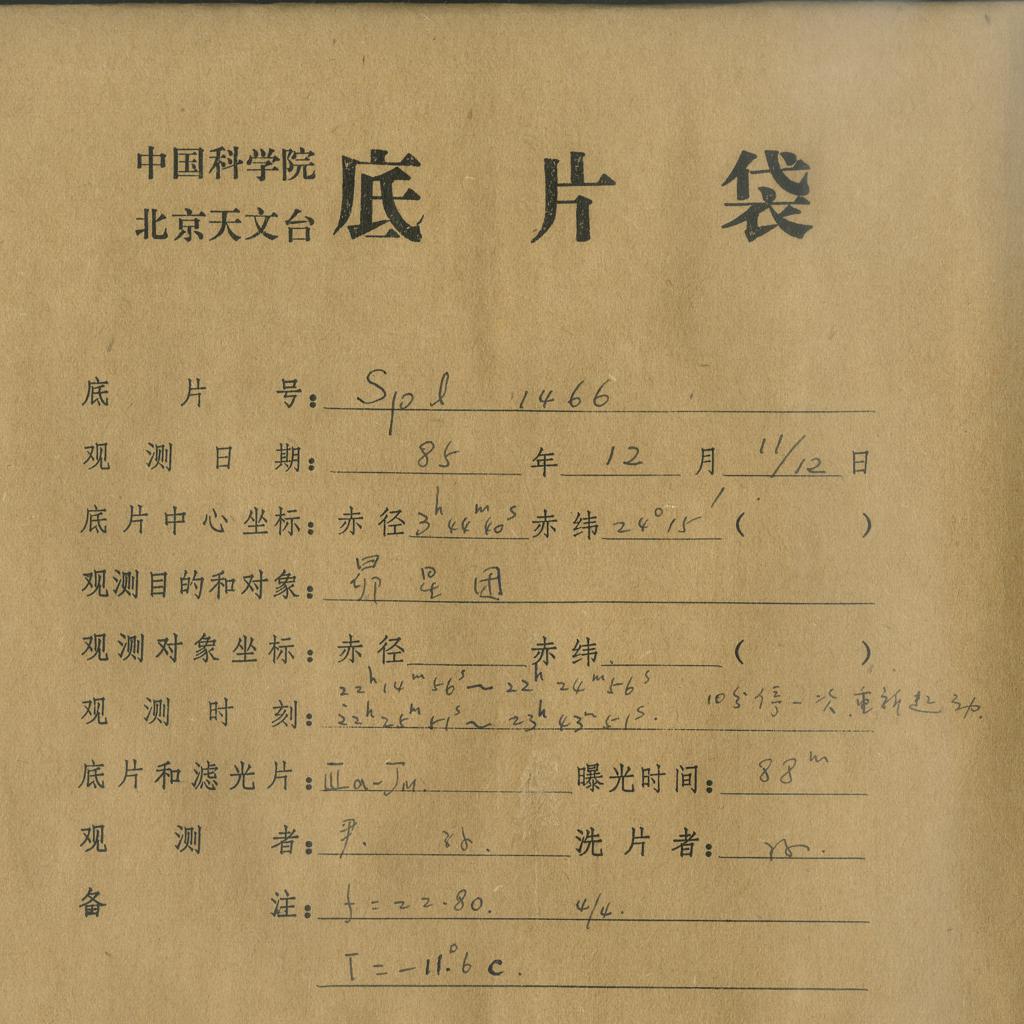 中国科学院
北京天文台
底片袋
底片号: Spl 1466
观测日期: 85年12月11/12日
底片中心坐标: 赤径3ʰ44ᵐ40ˢ赤纬24°15′( )
观测目的和对象: 昴星团
观测对象坐标: 赤径 赤纬 ( )
22ʰ14ᵐ56ˢ~22ʰ24ᵐ56ˢ
观测时刻: 22ʰ25ᵐ51ˢ~23ʰ43ᵐ51ˢ. 10分停一次重新起动.
底片和滤光片: Ⅲa-J 曝光时间: 88ᵐ
观测者: 尹. 洗片者:
备注: f=22.80. 4/4.
T=-11.°6 C.